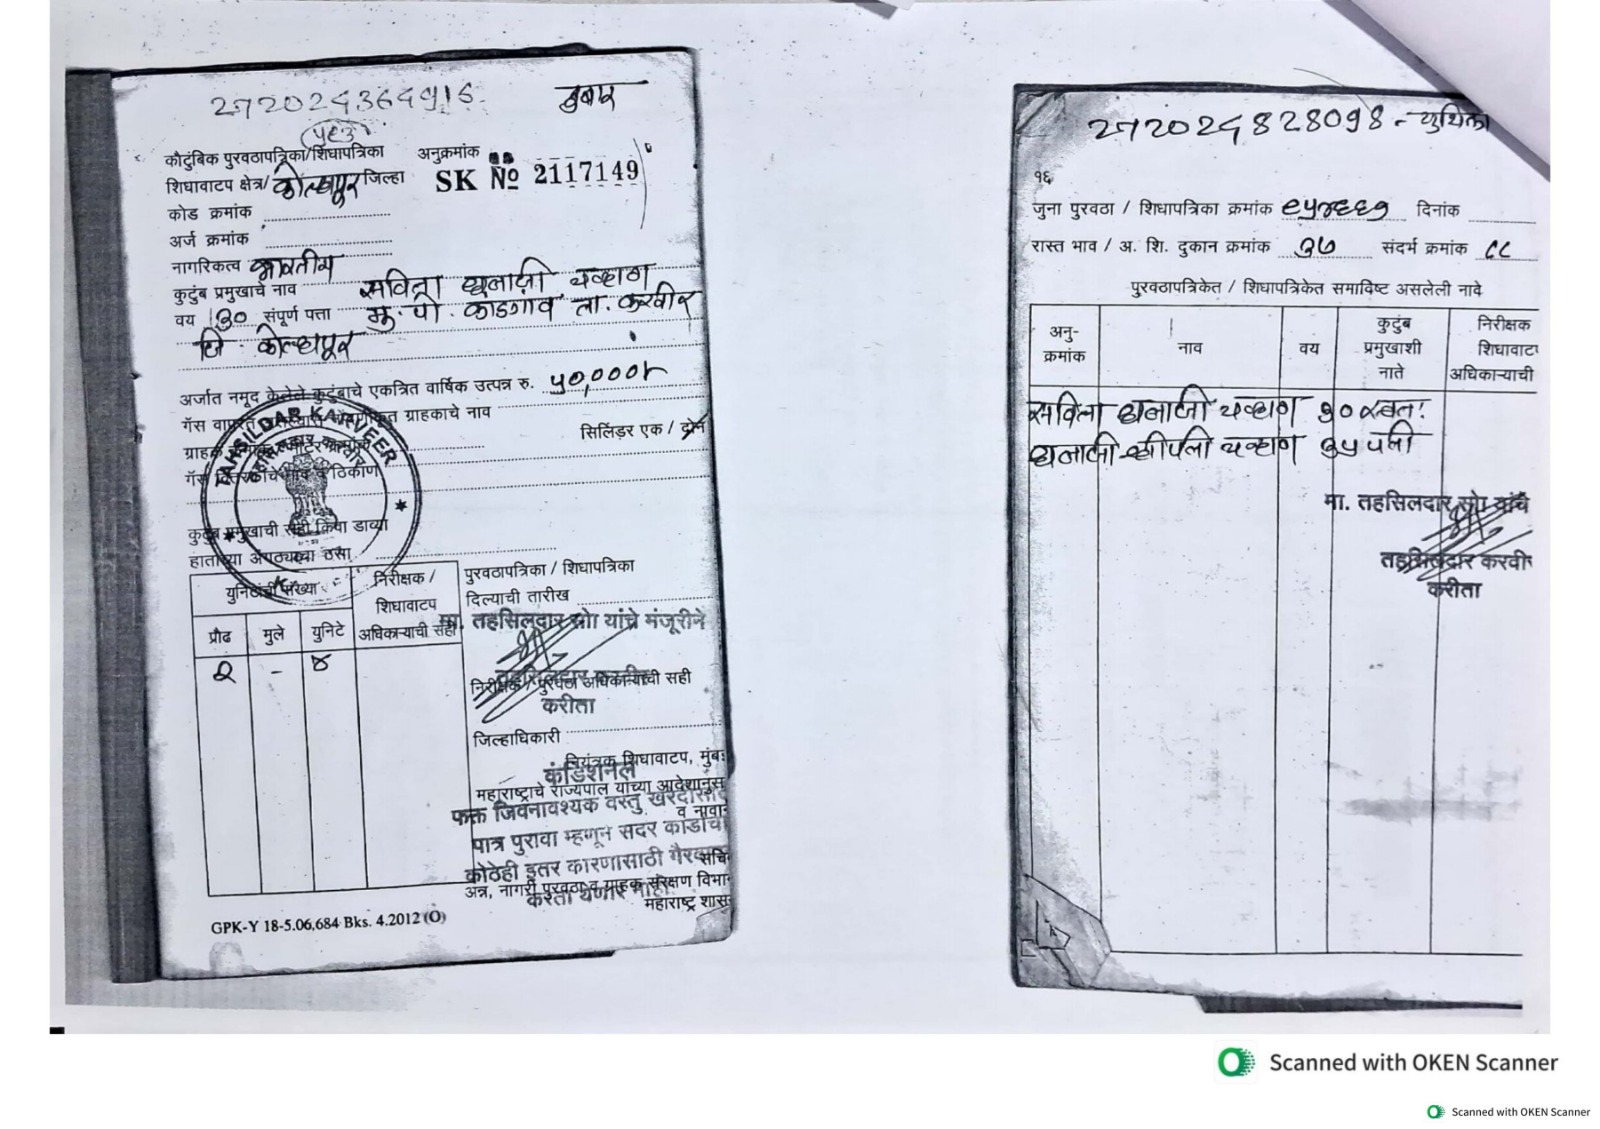 272024364916
दुबार
५९३
कौटुंबिक पुरवठापत्रिका/शिधापत्रिका अनुक्रमांक
शिधावाटप क्षेत्र/ कोल्हापूर जिल्हा SK № 2117149
कोड क्रमांक
अर्ज क्रमांक
नागरिकत्व भारतीय
कुटुंब प्रमुखाचे नाव सविता धनाजी चव्हाण
वय ३० संपूर्ण पत्ता मु. पो. कोडगाव ता. करवीर
जि. कोल्हापूर
अर्जात नमूद केलेले कुटुंबाचे एकत्रित वार्षिक उत्पन्न रु. ५०,०००/-
गॅस वापरत ग्राहकाचे नाव
ग्राहक सिलिंडर एक / दोन
गॅस ठिकाण
TAHSILDAR KARVEER
कुटुंब प्रमुखाची सही किंवा डाव्या
हाताच्या अंगठ्याचा ठसा
युनिटांची संख्या निरीक्षक / शिधावाटप अधिकाऱ्याची सही
प्रौढ मुले युनिटे
२ - ४
पुरवठापत्रिका / शिधापत्रिका
दिल्याची तारीख
मा. तहसिलदार सो यांचे मंजूरीने
तहसिलदार करवीर
निरीक्षक / पुरवठा अधिकाऱ्याची सही
करीता
जिल्हाधिकारी
नियंत्रक शिधावाटप, मुंब
कंडिशनल
महाराष्ट्राचे राज्यपाल यांच्या आदेशानुस
व नावा
फक्त जिवनावश्यक वस्तु खरेदीसाठी
पात्र पुरावा म्हणून सदर कार्डाच
कोठेही इतर कारणासाठी गैरवा
सचि
अन्न, नागरी पुरवठा व ग्राहक संरक्षण विभा
करता येणार नाही
महाराष्ट्र शास
GPK-Y 18-5,06,684 Bks. 4.2012 (O)
272024828098 -
१६
जुना पुरवठा / शिधापत्रिका क्रमांक ९५४६६७ दिनांक
रास्त भाव / अ. शि. दुकान क्रमांक ३७ संदर्भ क्रमांक ८८
पुरवठापत्रिकेत / शिधापत्रिकेत समाविष्ट असलेली नावे
अनु-क्रमांक नाव वय कुटुंब प्रमुखाशी नाते निरीक्षक शिधावाट अधिकाऱ्याची
सविता धनाजी चव्हाण ३० स्वतः
धनाजी चव्हाण ३५ पती
मा. तहसिलदार सो यांचे
तहसिलदार करवीर
करीता
Scanned with OKEN Scanner
Scanned with OKEN Scanner